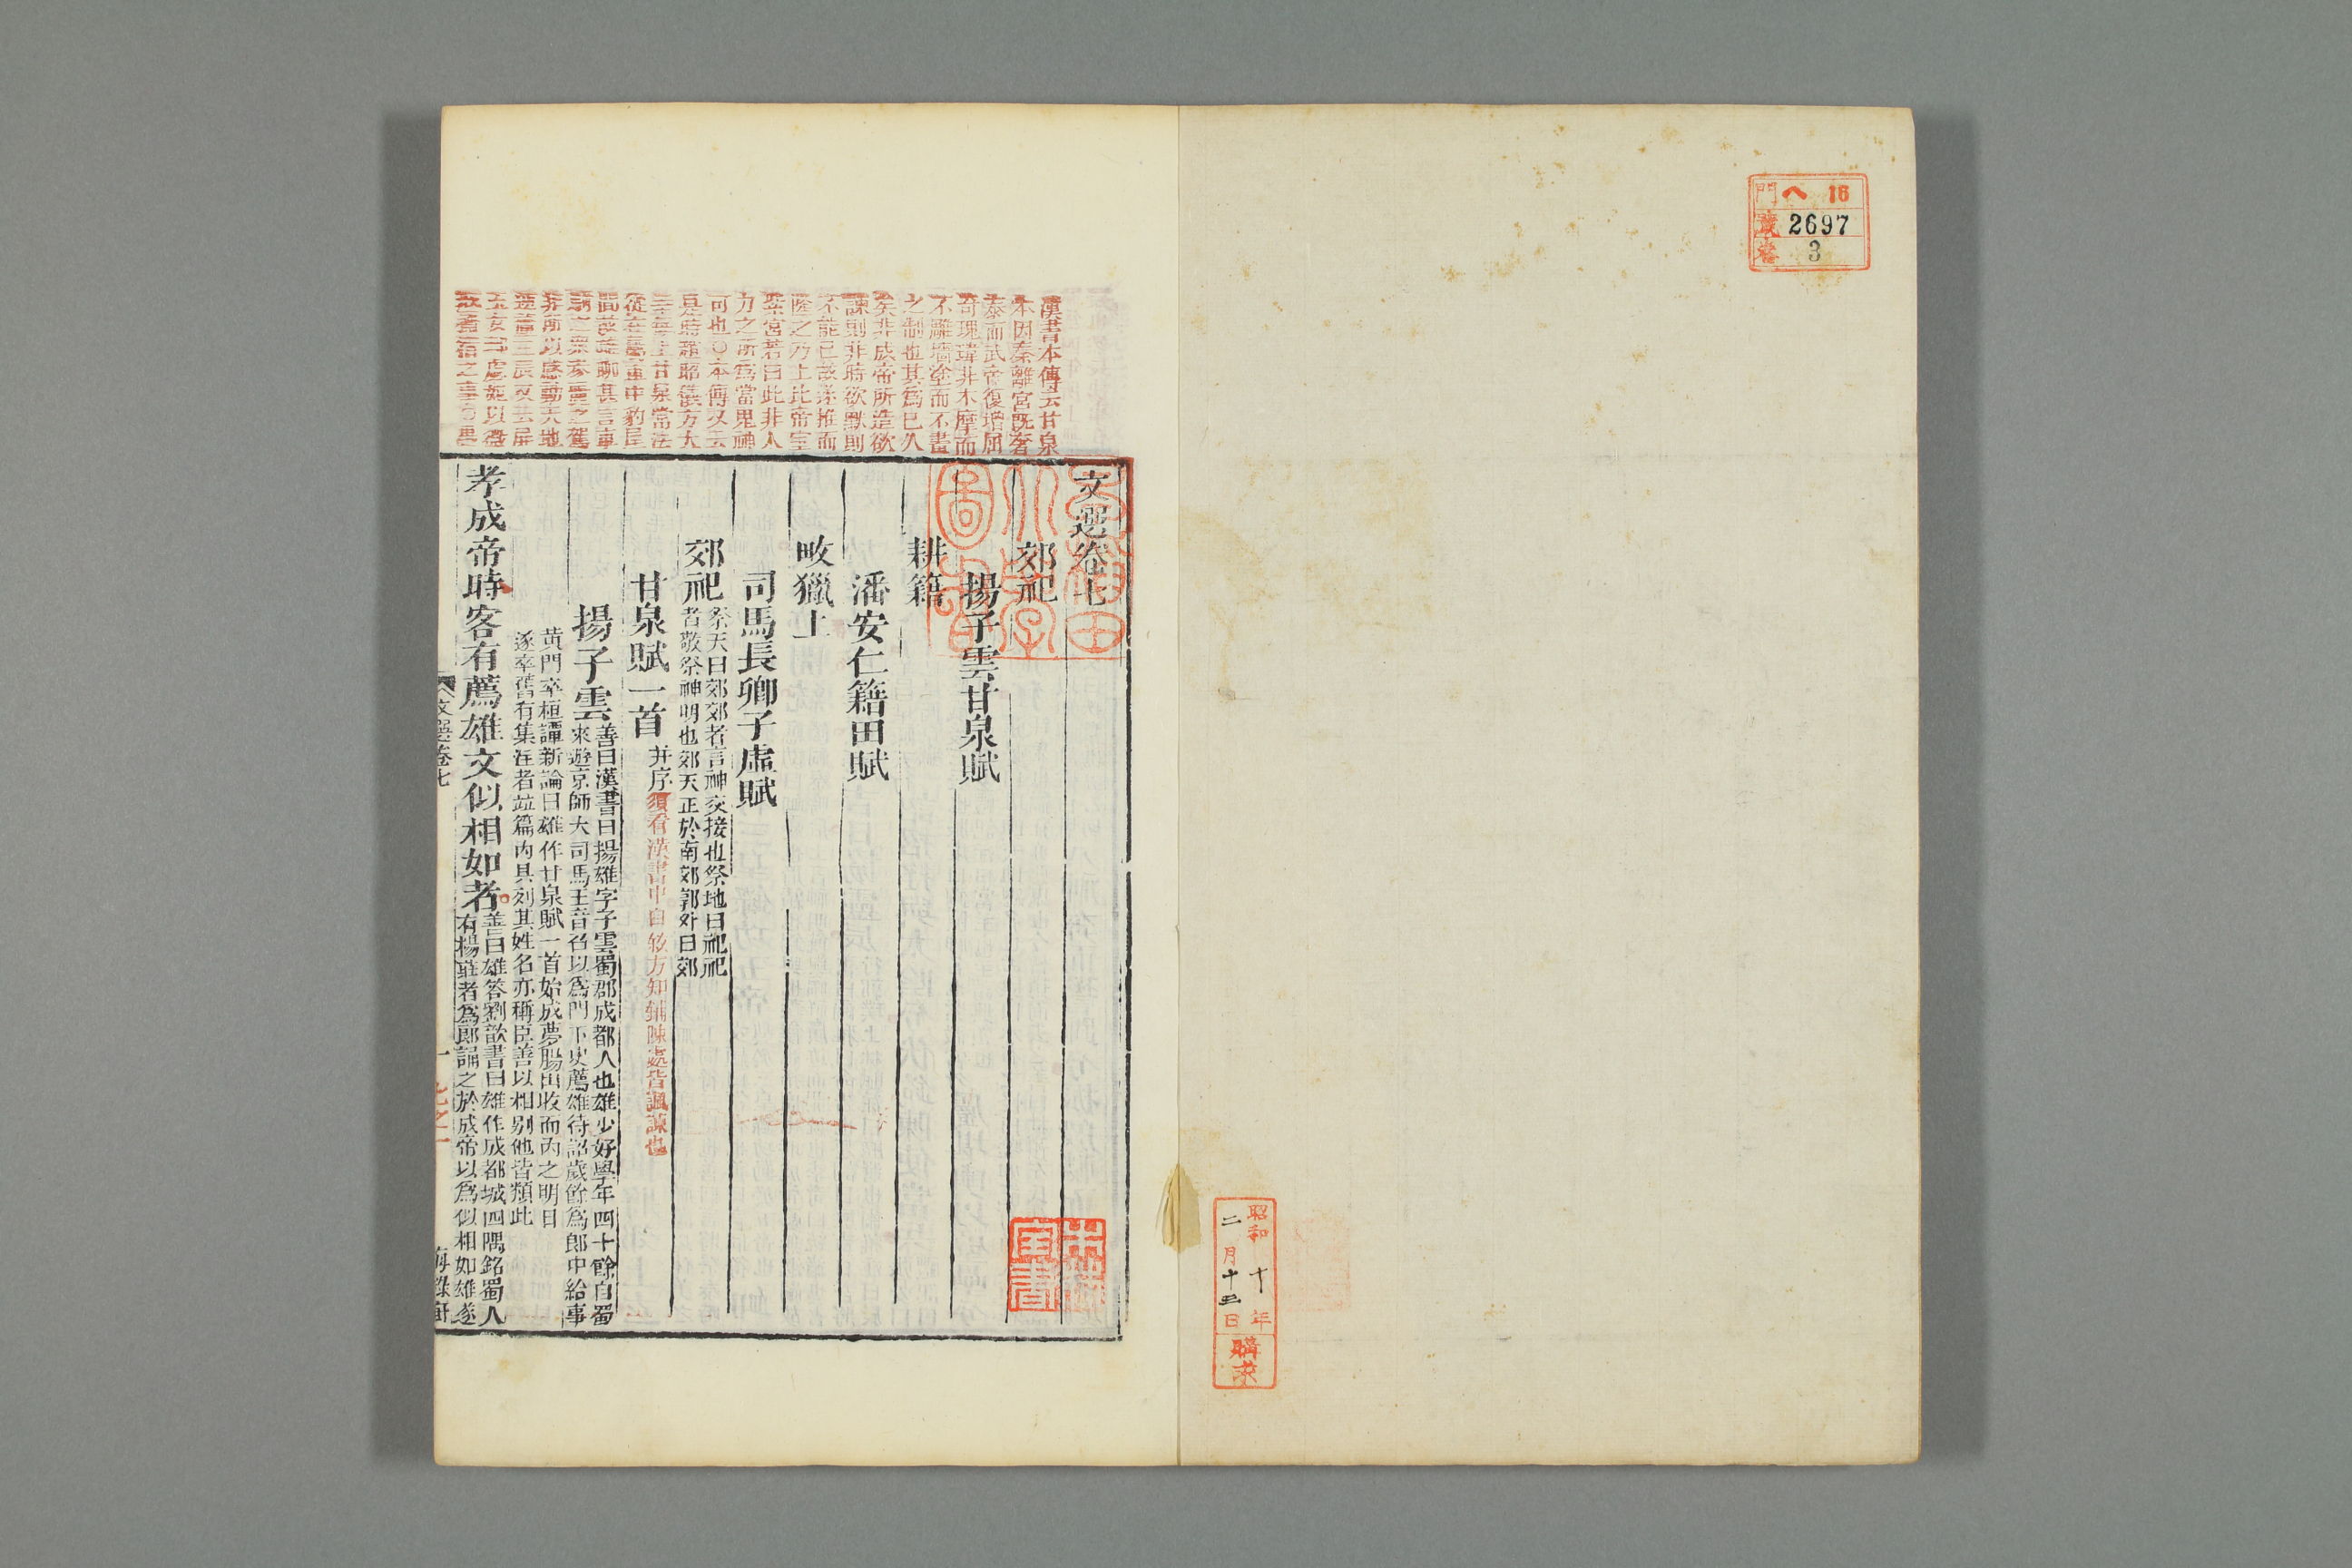 門 ヘ 16
號 2697
卷 3
昭和十年
二月十三日
購求
漢書本傳云甘泉
本因秦離宮既奢
泰而武帝復增屈
奇瑰瑋非木摩而
不雕墻塗而不畫
之制也其為已久
矣非成帝所造欲
諫則非時欲默則
不能已故遂推而
隆之乃上比帝室
紫宮若曰此非人
力之所為當鬼神
可也○本傳又云
是時趙昭儀方大
幸每上甘泉常法
從在屬車間豹尾
文選卷七
郊祀
揚子雲甘泉賦
耕籍
潘安仁籍田賦
畋獵上
司馬長卿子虛賦
郊祀
祭天曰郊郊者言神交接也祭地曰祀祀
者敬祭神明也郊天正於南郊郭外曰郊
甘泉賦一首
并序
須看漢書中自敘方知鋪陳處皆諷諫也
揚子雲
善曰漢書曰揚雄字子雲蜀郡成都人也雄少好學年四十餘自蜀
來遊京師大司馬王音召以為門下史薦雄待詔歲餘為郎中給事
黃門卒桓譚新論曰雄作甘泉賦一首始成夢腸出收而內之明日
遂卒舊有集在者竝篇內具列其姓名亦稱臣善以相別他皆類此
孝成帝時客有薦雄文似相如者
善曰雄答劉歆書曰雄作成都城四隅銘蜀人
有楊莊者為郎誦之於成帝以為似相如雄遂
文選卷七
一
七之一
海錄軒